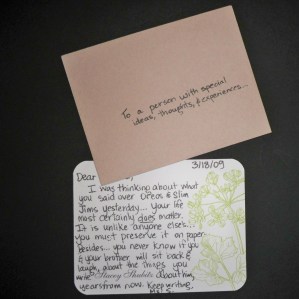 To a person with special
ideas, thoughts, & experiences...
3/18/09
Dear
I was thinking about what
you said over Oreos & Slim
Jims yesterday... your life
most certainly does matter.
It is unlike anyone else's...
you must preserve it on paper.
besides... you never know if you
& your brother will sit back &
laugh about the things you
write about him,
years from now. Keep writing,